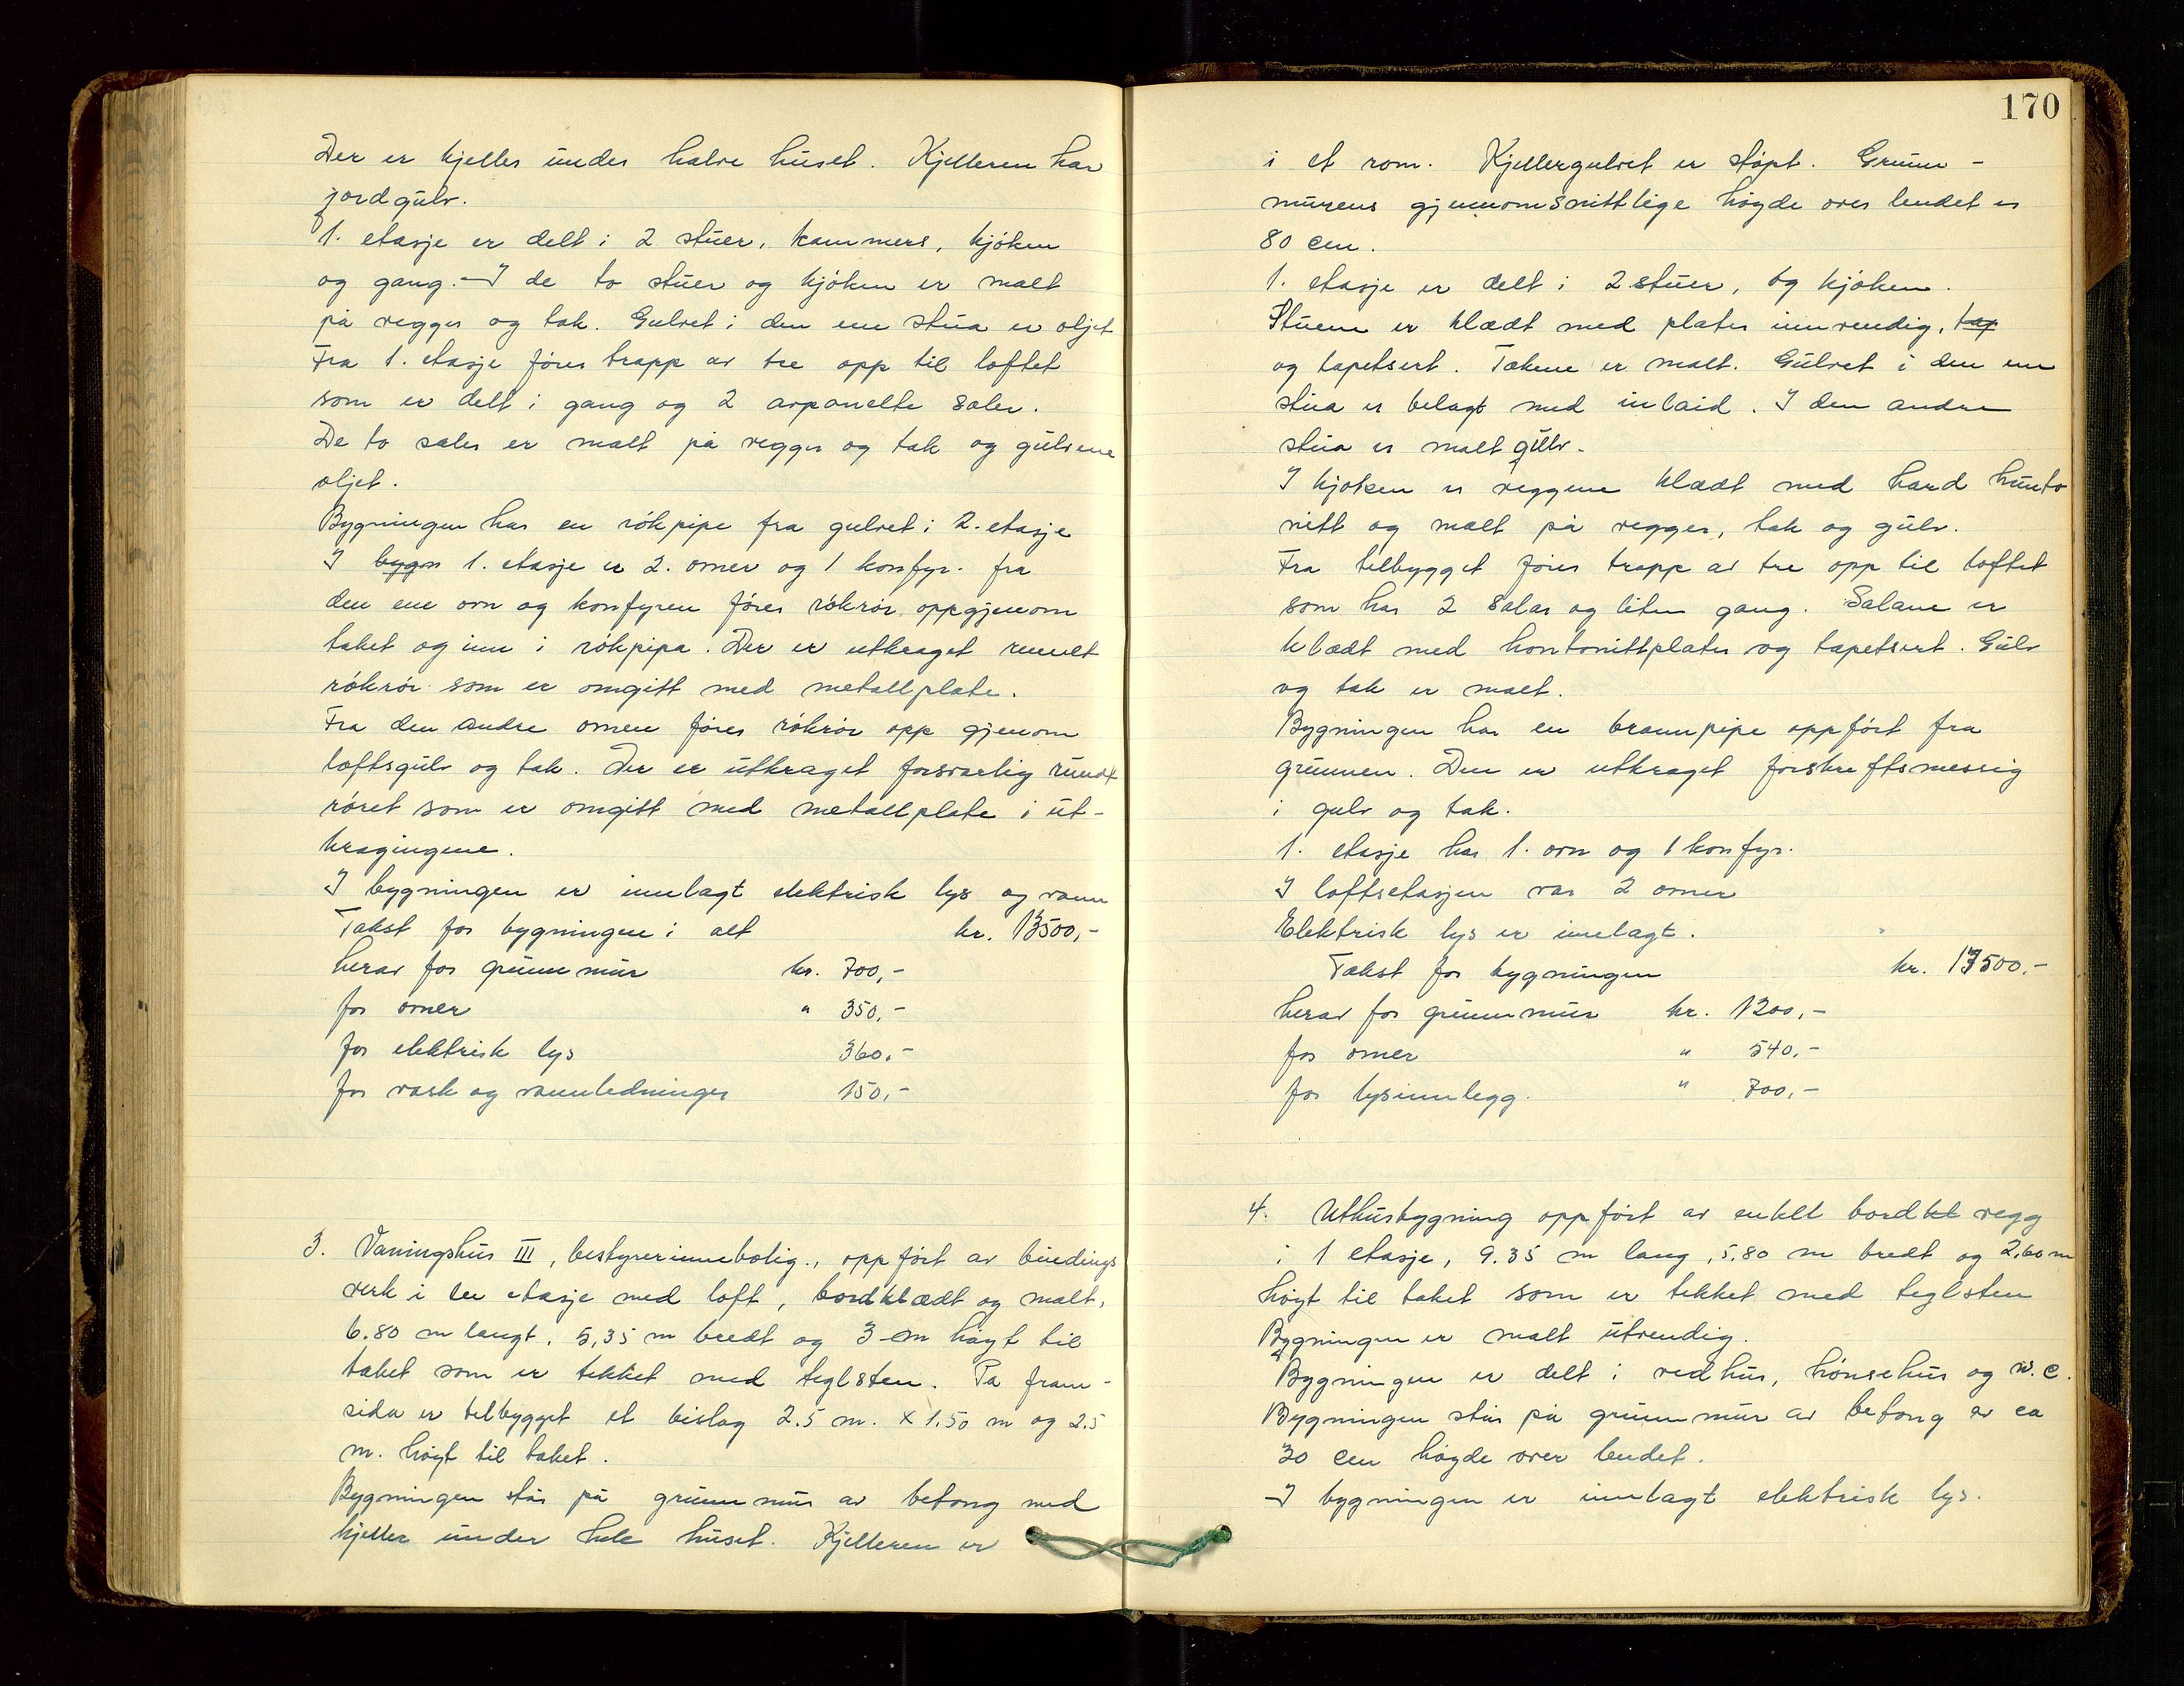 Der er kjeller under halve huset. Kjelleren har
jordgulv.
1. etasje er delt i 2 stuer, kammers, kjøken
og gang. - I de to stuer og kjøken er malt
på vegger og tak. Gulvet i den ene stua er oljet
Fra 1. etasje føres trapp av tre opp til loftet
som er delt i gang og 2 avpanelte saler.
De to saler er malt på vegger og tak og gulvene
oljet.
Bygningen har en røkpipe fra gulvet i 2. etasje
I bygn 1. etasje er 2. omner og 1 komfyr. fra
den ene ovn og komfyren føres røkrør oppgjenom
taket og inn i røkpipa. Der er utkraget rundt
røkrør som er omgitt med metallplate.
Fra den andre omnen føres røkrør opp gjenom
loftsgulv og tak. Der er utkraget forsvarlig rundt
røret som er omgitt med metallplate i ut-
kragingene.
I bygningen er innlagt elektrisk lys og vann
Takst for bygningen i alt kr. 13500,-
herav for grunnmur kr. 700,-
for omner " 350,-
for elektrisk lys 360,-
for vask og vannledninger 150,-
3. Våningshus III, bestyrerinnebolig., oppført av bindings
verk i en etasje med loft, bordklædt og malt,
6.80 m langt, 5,35 m bredt og 3 m høgt til
taket som er tekket med teglsten. På fram-
sida er tilbygget et bislag 2.5 m. x 1.50 m og 2.5
m. høgt til taket.
Bygningen står på grunnmur av betong med
kjeller under hele huset. Kjelleren er
170
i et rom. Kjellergulvet er støpt. Grunn-
murens gjennomsnittlige høgde over lendet er
80 cm.
1. etasje er delt i 2 stuer, og kjøken.
Stuene er klædt med plater innvendig, tap
og tapetsert. Takene er malt. Gulvet i den ene
stua er belagt med inlaid. I den andre
stua er malt gulv.
I kjøken er veggene klædt med hard hunto
nitt og malt på vegger, tak og gulv.
Fra tilbygget føres trapp av tre opp til loftet
som har 2 salar og liten gang. Salane er
klædt med hontonittplater og tapetsert. Gulv
og tak er malt.
Bygningen har en brannpipe oppført fra
grunnen. Den er utkraget forskreftsmessig
i gulv og tak.
1. etasje har 1. ovn og 1 komfyr.
I loftsetasjen var 2 omner
Elektrisk lys er innlagt.
Takst for bygningen kr. 17500,-
herav for grunnmur kr. 1200,-
for omner " 540,-
for lysinnlegg. " 700,-
4. Uthusbygning oppført av enkelt bordkl vegg
i 1 etasje, 9.35 m lang, 5.80 m bredt og 2,60 m
høgt til taket som er tekket med teglsten
Bygningen er malt utvendig.
Bygningen er delt i vedhus, hønsehus og w. c.
Bygningen står på grunnmur av betong av ca
30 cm høgde over lendet.
I bygningen er innlagt elektrisk lys.